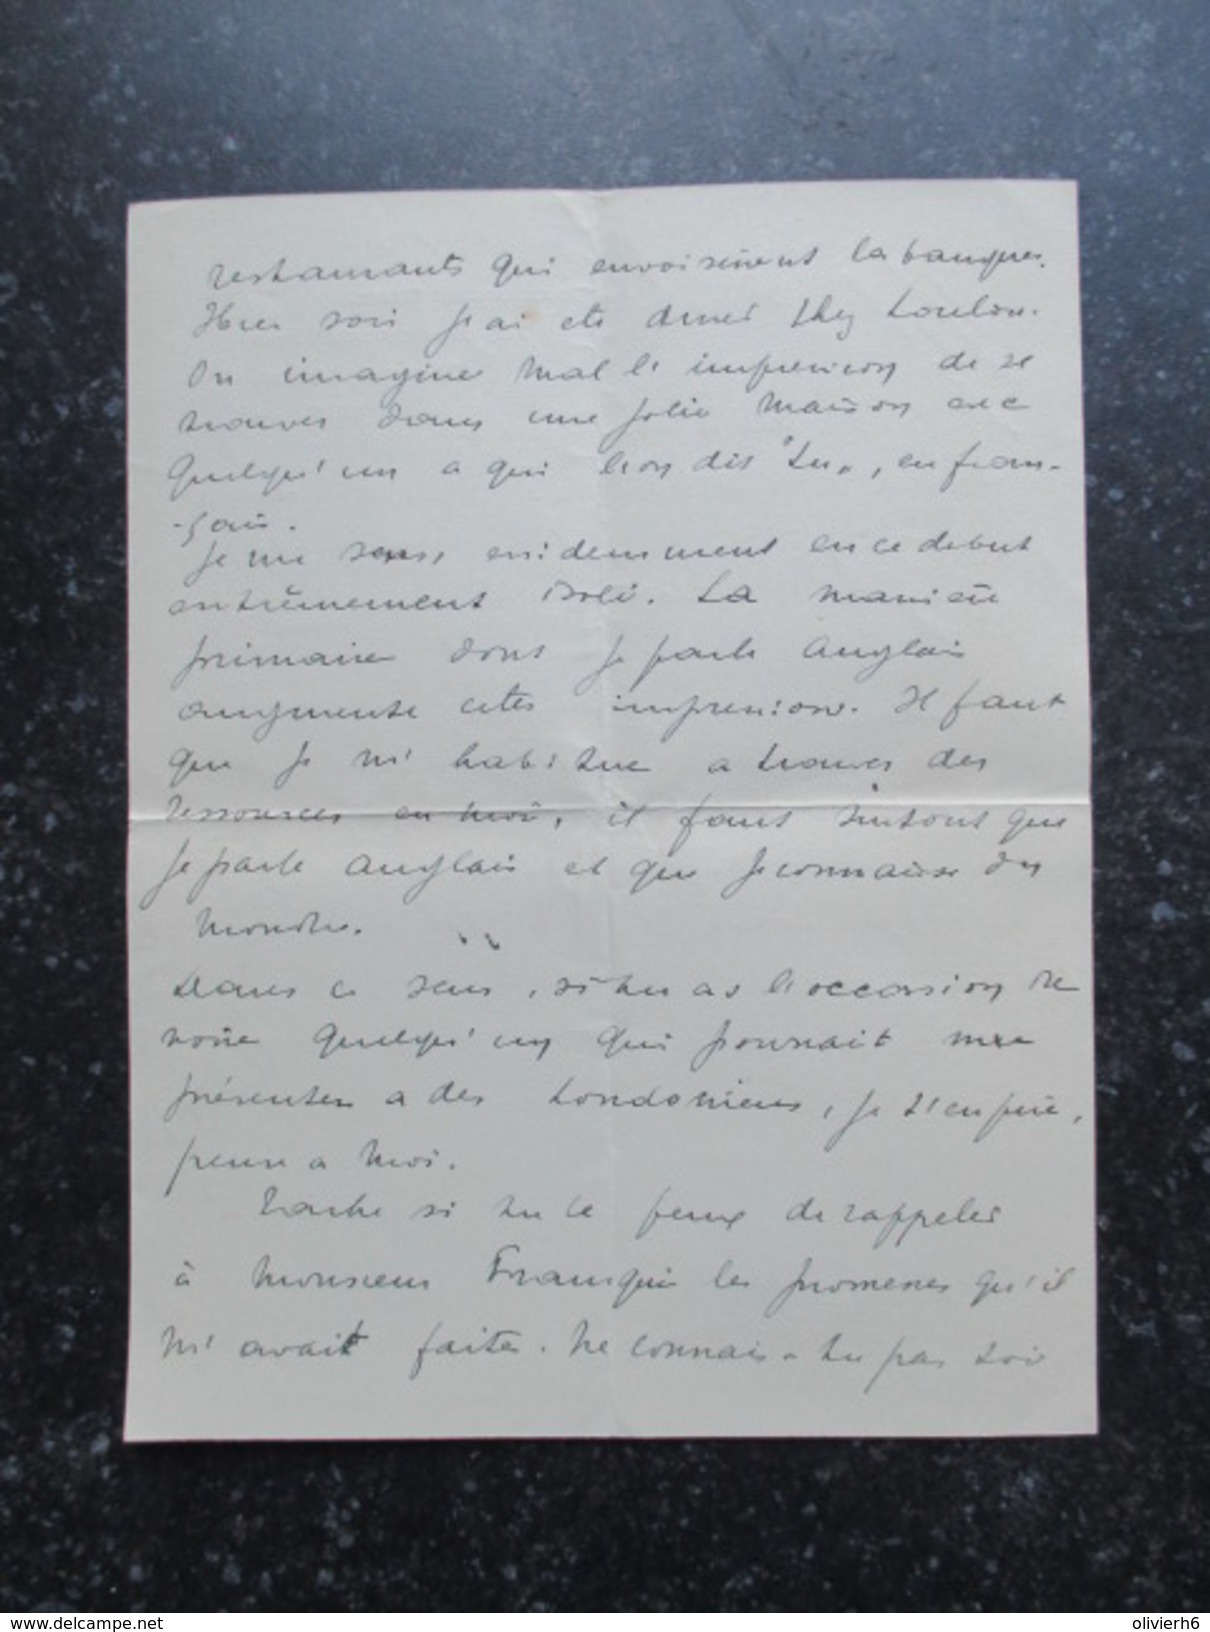 restaurants qui environnent la banque.
Hier soir j'ai été diner chez Loulou.
On imagine mal l'impression de se
trouver dans une jolie maison avec
quelqu'un a qui l'on dis "tu", en fran-
-çais.
Je me sens, evidemment en ce debut
extrêmement isolé. La manière
primaire dont je parle anglais
augmente cette impression. Il faut
que je m'habitue a trouver des
ressources en moi, il faut surtout que
je parle anglais et que je connaisse du
monde.
Dans ce sens, si tu as l'occasion de
voir quelqu'un qui pourrait me
présenter a des Londoniens, je t'en prie,
pense a moi.
Tache si tu le peux de rappeler
à Monsieur Francqui les promesses qu'il
m'avait faites. Ne connais-tu pas toi
www.delcampe.net
olivierh6